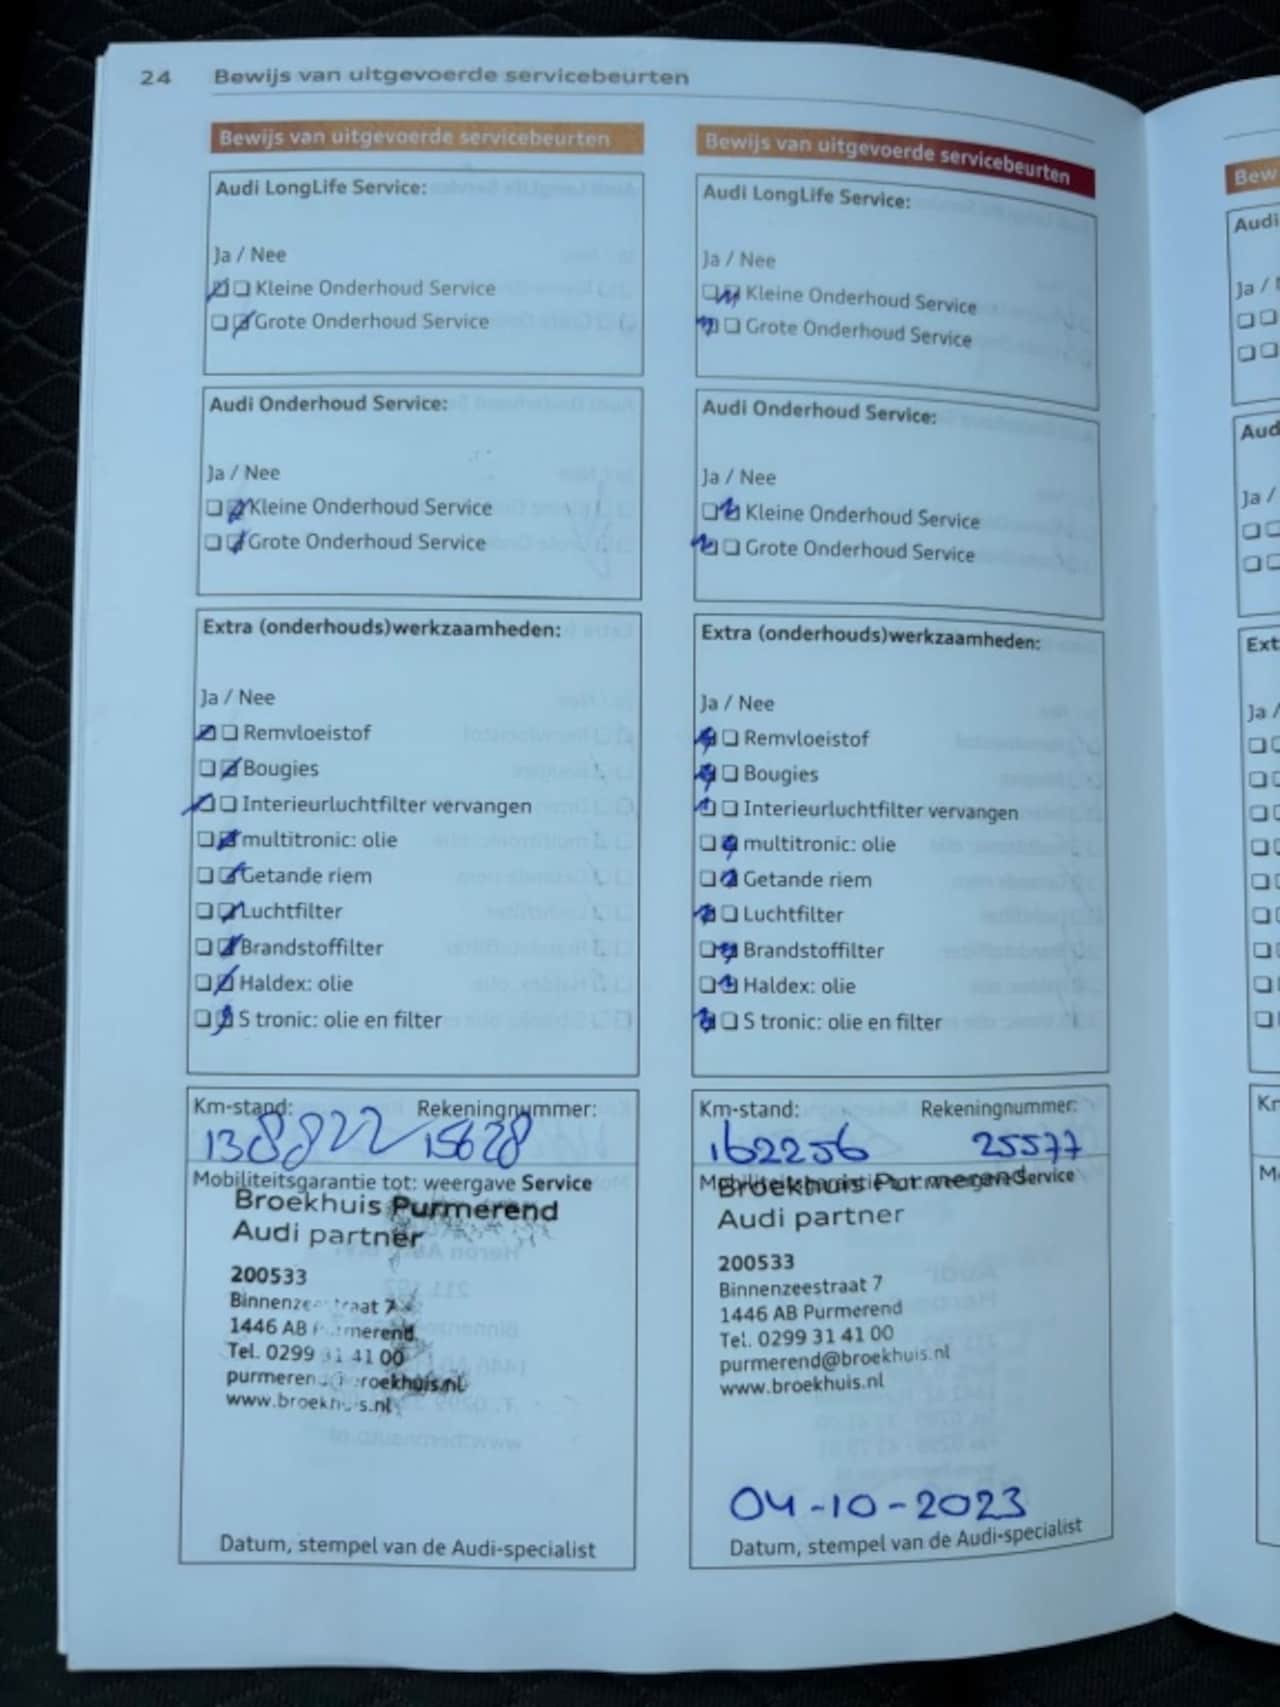 24 Bewijs van uitgevoerde servicebeurten
Bewijs van uitgevoerde servicebeurten
Audi LongLife Service:
Ja / Nee
Kleine Onderhoud Service
Grote Onderhoud Service
Audi Onderhoud Service:
Ja / Nee
Kleine Onderhoud Service
Grote Onderhoud Service
Extra (onderhouds)werkzaamheden:
Ja / Nee
Remvloeistof
Bougies
Interieurluchtfilter vervangen
multitronic: olie
Getande riem
Luchtfilter
Brandstoffilter
Haldex: olie
S tronic: olie en filter
Km-stand: Rekeningnummer:
138822 15628
Mobiliteitsgarantie tot: weergave Service
Broekhuis Purmerend
Audi partner
200533
Binnenzeestraat 7
1446 AB Purmerend
Tel. 0299 31 41 00
purmerend@broekhuis.nl
www.broekhuis.nl
Datum, stempel van de Audi-specialist
Bewijs van uitgevoerde servicebeurten
Audi LongLife Service:
Ja / Nee
Kleine Onderhoud Service
Grote Onderhoud Service
Audi Onderhoud Service:
Ja / Nee
Kleine Onderhoud Service
Grote Onderhoud Service
Extra (onderhouds)werkzaamheden:
Ja / Nee
Remvloeistof
Bougies
Interieurluchtfilter vervangen
multitronic: olie
Getande riem
Luchtfilter
Brandstoffilter
Haldex: olie
S tronic: olie en filter
Km-stand: Rekeningnummer:
162256 25577
Mobiliteitsgarantie tot: weergave Service
Broekhuis Purmerend
Audi partner
200533
Binnenzeestraat 7
1446 AB Purmerend
Tel. 0299 31 41 00
purmerend@broekhuis.nl
www.broekhuis.nl
04-10-2023
Datum, stempel van de Audi-specialist
Bew
Audi
Ja /
Aud
Ja /
Ext
Ja /